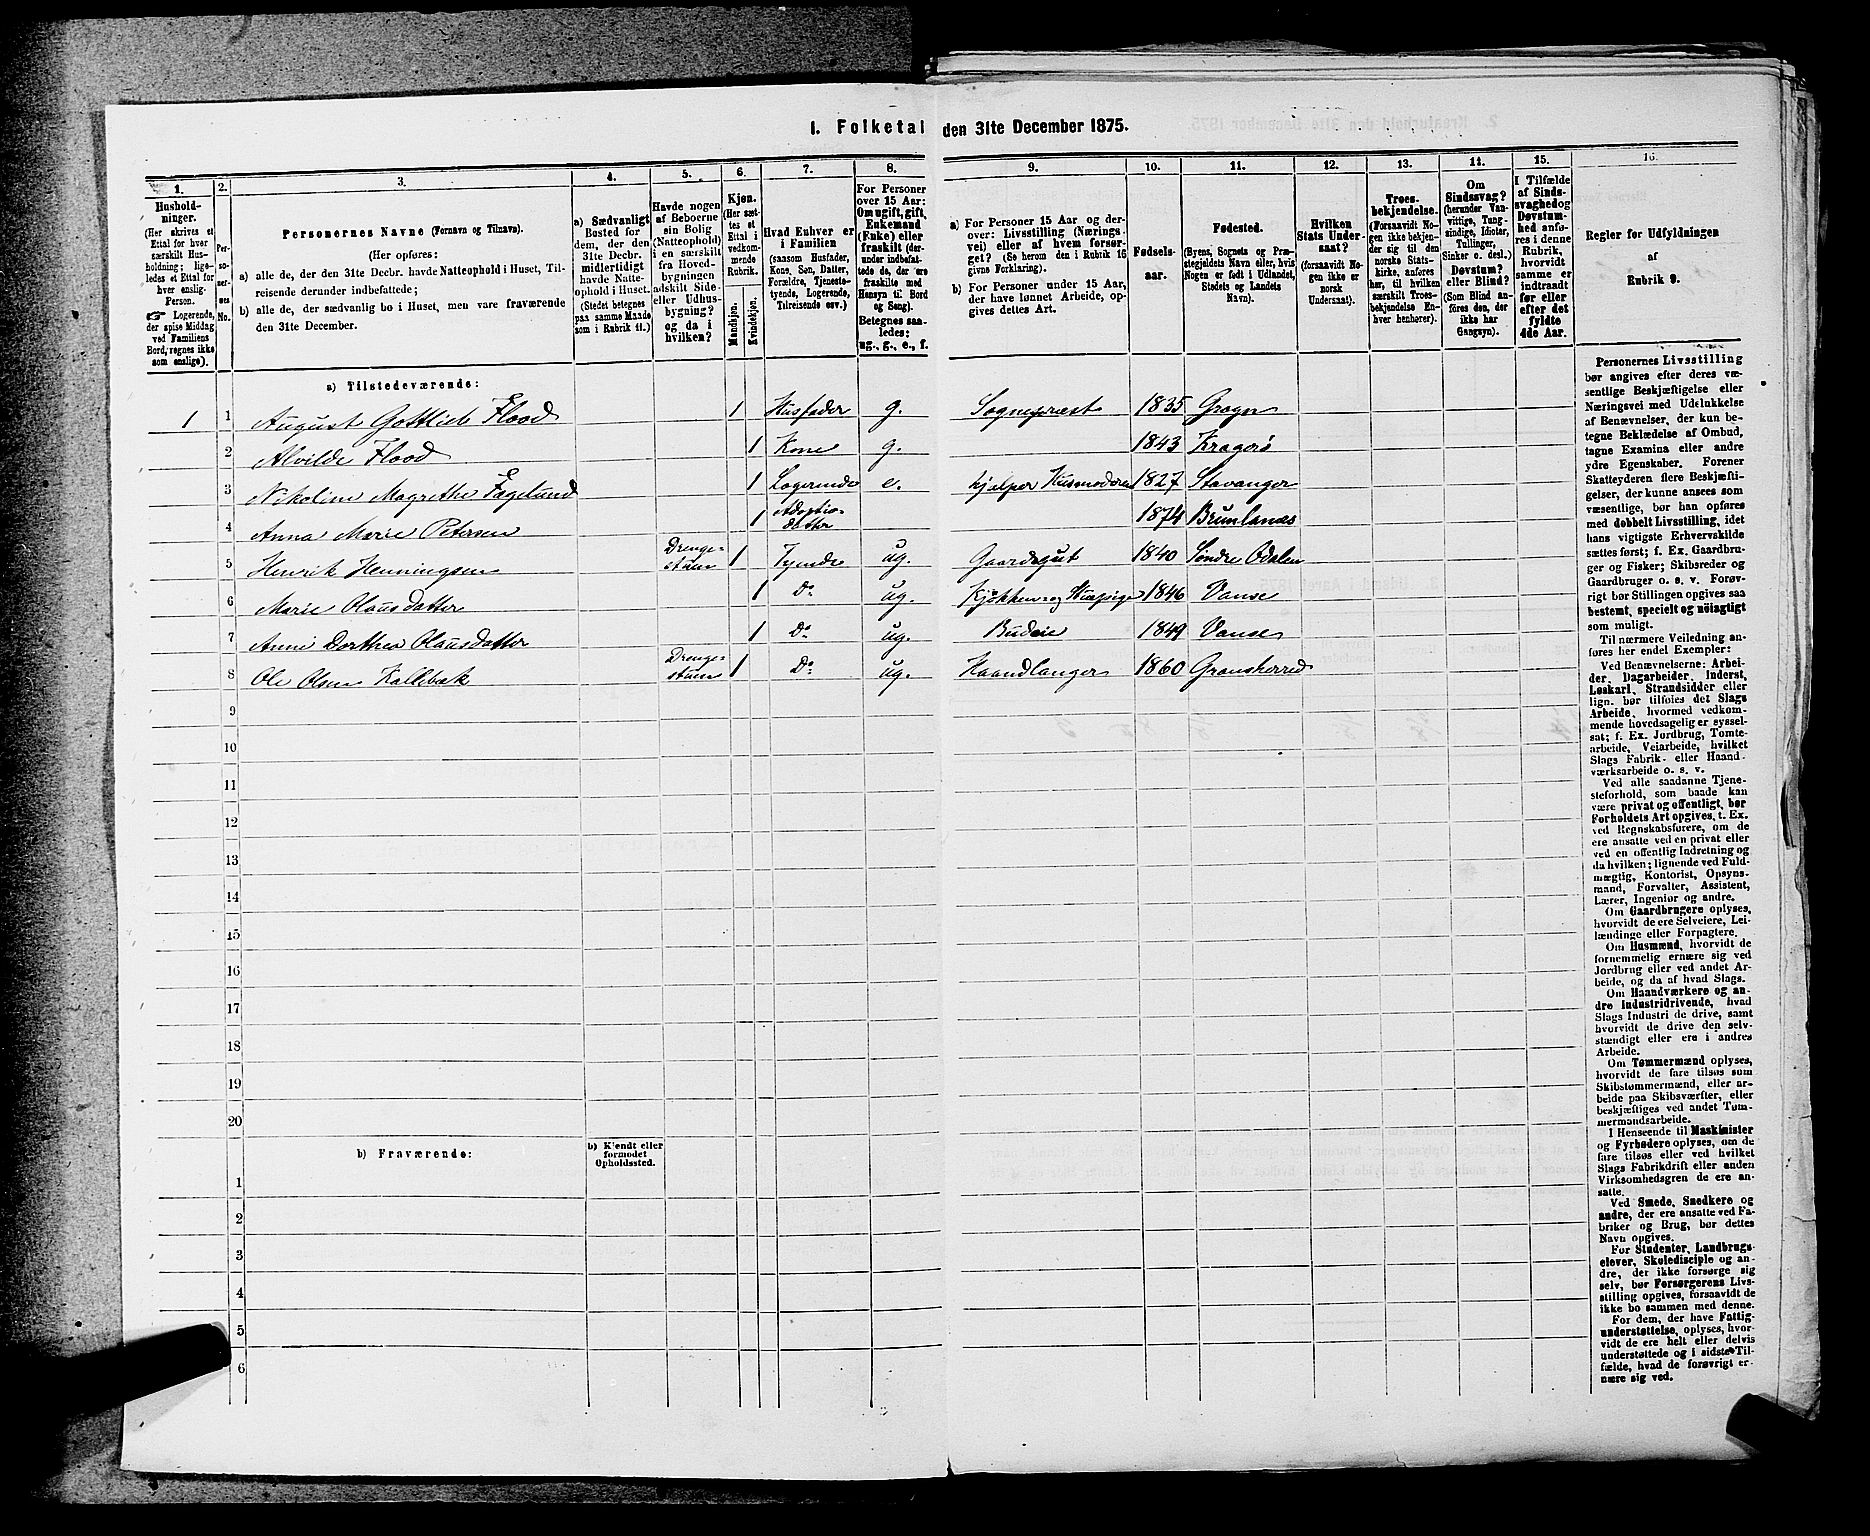 I. Folketal den 31te December 1875.
1. 2. 3. 4. 5. 6. 7. 8. 9. 10. 11. 12. 13. 14. 15. 16.
Hushold-
ninger.
(Her skrives et
Ettal for hver
særskilt Hus-
holdning; lige-
ledes et Ettal for
hver enslig
Person.
☞ Logerende,
der spise Middag
ved Familiens
Bord, regnes ikke
som enslige).
Per-
so-
ner-
nes
No.
Personernes Navne (Fornavn og Tilnavn).
(Her opføres:
a) alle de, der den 31te Decbr. havde Natteophold i Huset, Til-
reisende derunder indbefattede;
b) alle de, der sædvanlig bo i Huset, men vare fraværende
den 31te December.
a) Sædvanligt
Bosted for
dem, der den
31te Decbr.
midlertidigt
havde Natte-
ophold i Huset.
(Stedet betegnes
paa samme Maade
som i Rubrik 11.)
Havde nogen
af Beboerne
sin Bolig
(Natteophold)
i en særskilt
fra Hoved-
bygningen
adskilt Side-
eller Udhus-
bygning?
og da i
hvilken?
Kjøn.
(Her sæt-
tes et
Ettal i
vedkom-
mende
Rubrik.
Mandkjøn.
Kvindekjøn.
Hvad Enhver er
i Familien
(saasom Husfader,
Kone, Søn, Datter,
Forældre, Tjeneste-
tyende, Logerende,
Tilreisende osv.)
For Personer
over 15 Aar:
Om ugift, gift,
Enkemand
(Enke) eller
fraskilt (der-
under indbefat-
tede de, der ere
fraskilte med
Hensyn til Bord
og Seng).
Betegnes saa-
ledes:
ug., g., e., f.
a) For Personer 15 Aar og der-
over: Livsstilling (Nærings-
vei) eller af hvem forsør-
get? (Se herom den i Rubrik 16
givne Forklaring).
b) For Personer under 15 Aar,
der have lønnet Arbeide, op-
gives dettes Art.
Fødsels-
aar.
Fødested.
(Byens, Sognets og Præ-
stegjeldets Navn eller, hvis
Nogen er født i Udlandet,
Stedets og Landets
Navn).
Hvilken
Stats Under-
saat?
(forsaavidt No-
gen ikke er
norsk
Undersaat).
Troes-
bekjendelse.
(Forsaavidt No-
gen ikke bekjen-
der sig til den
norske Stats-
kirke, anføres
her, til hvilken
særskilt Troes-
bekjendelse En-
hver henhører).
Om
Sindssvag?
(herunder Van-
vittige, Tung-
sindige, Idioter,
Tullinger,
Sinker o. desl.)
Døvstum?
eller Blind?
(Som Blind an-
føres den, der
ikke har
Gangsyn).
I Tilfælde
af Sinds-
svaghed og
Døvstum-
hed anfø-
res i denne
Rubrik,
hvorvidt
samme er
indtraadt
før eller
efter det
fyldte
4de Aar.
Regler for Udfyldningen
af
Rubrik 9.
a) Tilstedeværende:
1 1 August Gottlieb Flood 1 Husfader g. Sognepræst 1835
2 Alvilde Flood 1 Kone g. 1843 Kragerø
3 Nikoline Magrethe Fagelund 1 Logerende e. hjelper Husmoderen 1827 Stavanger
4 Anna Marie Petersen 1 Adoptiv-
datter 1874 Brunlanes
5 Henrik Henningsen Drenge-
stuen 1 Tyende ug. Gaardsgut 1840 Søndre Odalen
6 Marie Olausdatter 1 Do ug. Kjøkken og Huspige 1846 Vanse
7 Anne Dorthea Olausdatter 1 Do ug. Budeie 1849 Vanse
8 Ole Olsen Kallebæk Drenge-
stuen 1 Do ug. Haandlanger 1860 Gransherred
9
10
11
12
13
14
15
16
17
18
19
20
b) Fraværende:
b) Kjendt eller
formodet
Opholdssted.
1
2
3
4
5
6
Personernes Livsstilling
bør angives efter deres væ-
sentlige Beskjæftigelse eller
Næringsvei med Udelukkelse
af Benævnelser, der kun be-
tegne Beklædelse af Ombud,
tagne Examina eller andre
ydre Egenskaber. Forener
Skatteyderen flere Beskjæfti-
gelser, der kunne ansees som
væsentlige, bør han opføres
med dobbelt Livsstilling, idet
hans vigtigste Erhvervskilde
sættes først; f. Ex. Gaardbru-
ger og Fisker; Skibsreder og
Gaardbruger o. s. v. Forøv-
rigt bør Stillingen opgives saa
bestemt, specielt og nöiagtigt
som muligt.
Til nærmere Veiledning an-
føres her endel Exempler:
Ved Benævnelserne: Arbei-
der, Dagarbeider, Inderst,
Løskarl, Strandsidder eller
lign. bør tilføies det Slags
Arbeide, hvormed vedkom-
mende hovedsagelig er syssel-
sat; f. Ex. Jordbrug, Tomte-
arbeide, Veiarbeide, hvilket
Slags Fabrik- eller Haand-
værksarbeide o. s. v.
Ved alle saadanne Tjene-
steforhold, som baade kan
være privat og offentligt, bør
Forholdets Art opgives, t. Ex.
ved Regnskabsførere, om de
ere ansatte ved en privat eller
ved en offentlig Indretning og
da hvilken; lignende ved Fuld-
mægtig, Kontorist, Opsyns-
mand, Forvalter, Assistent,
Lærer, Ingeniør og andre.
Om Gaardbrugere oplyses,
hvorvidt de ere Selveiere, Lei-
lændinge eller Forpagtere.
Om Husmænd, hvorvidt de
fornemmelig ernære sig ved
Jordbrug eller ved andet Ar-
beide, og da af hvad Slags.
Om Haandværkere og an-
dre Industridrivende, hvad
Slags Industri de drive, samt
hvorvidt de drive den selv-
stændigt eller ere i andres
Arbeide.
Om Tømmermænd oplyses,
hvorvidt de fare tilsøs som
Skibstømmermænd, eller ar-
beide paa Skibsværfter, eller
beskjæftiges ved andet Tøm-
mermandsarbeide.
I Henseende til Maskinister
og Fyrbødere oplyses, om de
fare tilsøs eller ved hvilket
Slags Fabrikdrift eller anden
Virksomhedsgren de ere an-
satte.
Ved Smede, Snedkere og
andre, der ere ansatte ved Fa-
briker og Brug, bør dettes
Navn opgives.
For Studenter, Landbrugs-
elever, Skoledisciple og an-
dre, der ikke forsørge sig
selv, bør Forsørgerens Livs-
stilling opgives, forsaavidt de
ikke bo sammen med denne.
For dem, der have Fattig-
understøttelse, oplyses, hvor-
vidt de ere helt eller delvis
understøttede og i sidste Til-
fælde, hvad de forøvrigt er-
nære sig ved.